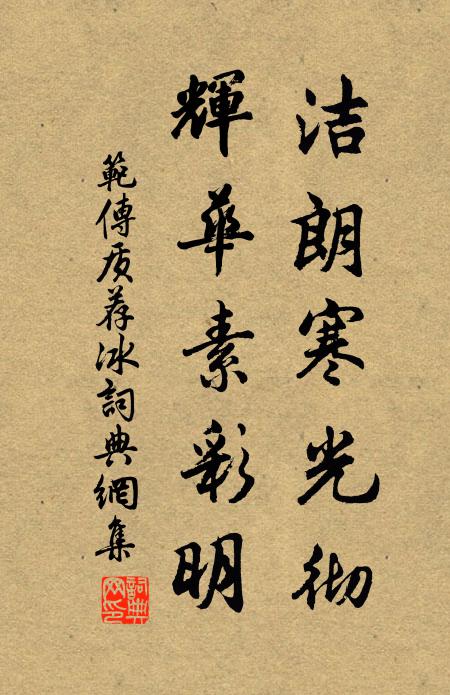 洁朗寒光彻
輝華素彩明
範傳质荐冰詞典網集
詞典
网印